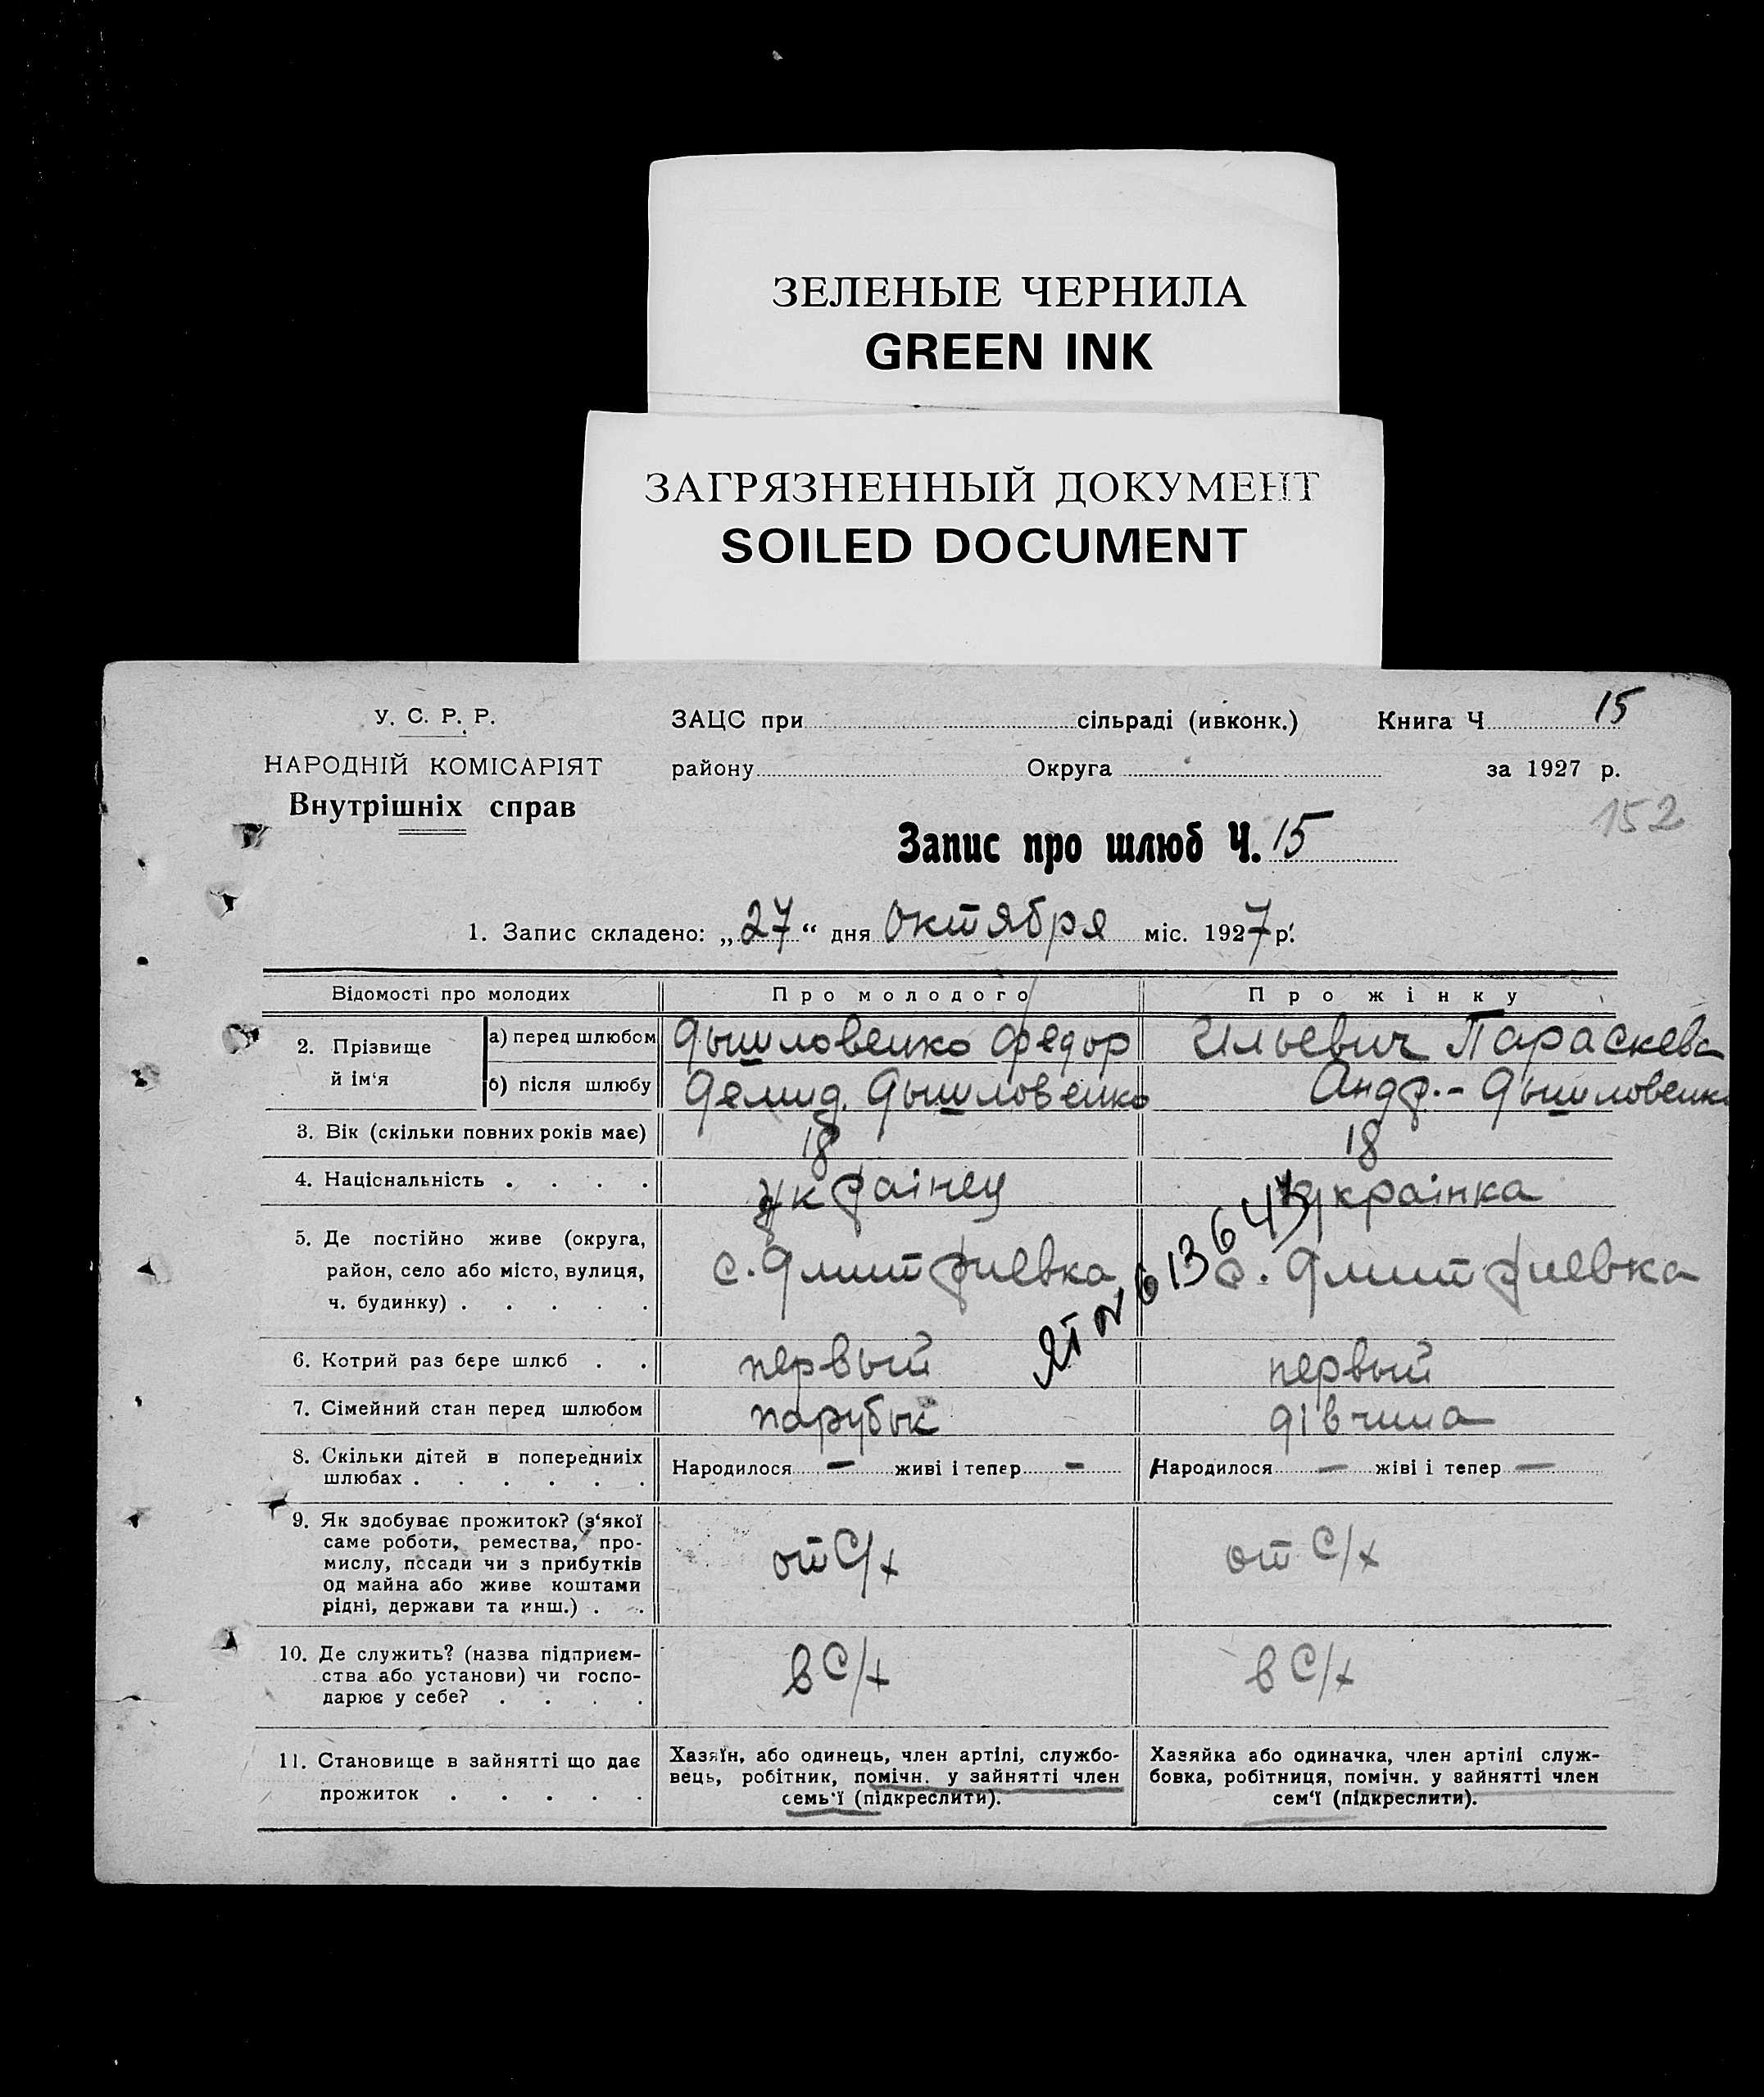 ЗЕЛЕНЫЕ ЧЕРНИЛА
GREEN INK
ЗАГРЯЗНЕННЫЙ ДОКУМЕНТ
SOILED DOCUMENT
У. С. Р. Р.
НАРОДНІЙ КОМІСАРІЯТ
Внутрішніх справ
ЗАЦС при сільраді (ивконк.) Книга Ч 15
району Округа за 1927 р.
152
Запис про шлюб Ч. 15
1. Запис складено: „27“ дня октября міс. 1927 р.
Відомості про молодих Про молодого Про жінку
2. Прізвище й ім‘я
а) перед шлюбом Дышловенко Федор Ильевич Параскева
б) після шлюбу Демид. Дышловенко Андр.- Дышловенко
3. Вік (скільки повних років має) 18 18
4. Національність . . . . украінец украінка
5. Де постійно живе (округа,
район, село або місто, вулиця,
ч. будинку) . . . . .
с. Дмитриевка с. Дмитриевка
ЯТ № 613643
6. Котрий раз бере шлюб . . первый первый
7. Сімейний стан перед шлюбом парубок дівчина
8. Скільки дітей в попередниіх
шлюбах . . . . . .
Народилося — живі і тепер — Народилося — жіві і тепер —
9. Як здобуває прожиток? (з‘якої
саме роботи, ремества, про-
мислу, посади чи з прибутків
од майна або живе коштами
рідні, держави та инш.) . .
от С/х от С/х
10. Де служить? (назва підприєм-
ства або установи) чи госпо-
дарює у себе? . . . .
в С/х в С/х
11. Становище в зайнятті що дає
прожиток . . . . .
Хазяїн, або одинець, член артілі, службо-
вець, робітник, помічн. у зайнятті член
семь‘ї (підкреслити).
Хазяйка або одиначка, член артілі служ-
бовка, робітниця, помічн. у зайнятті член
сем‘ї (підкреслити).